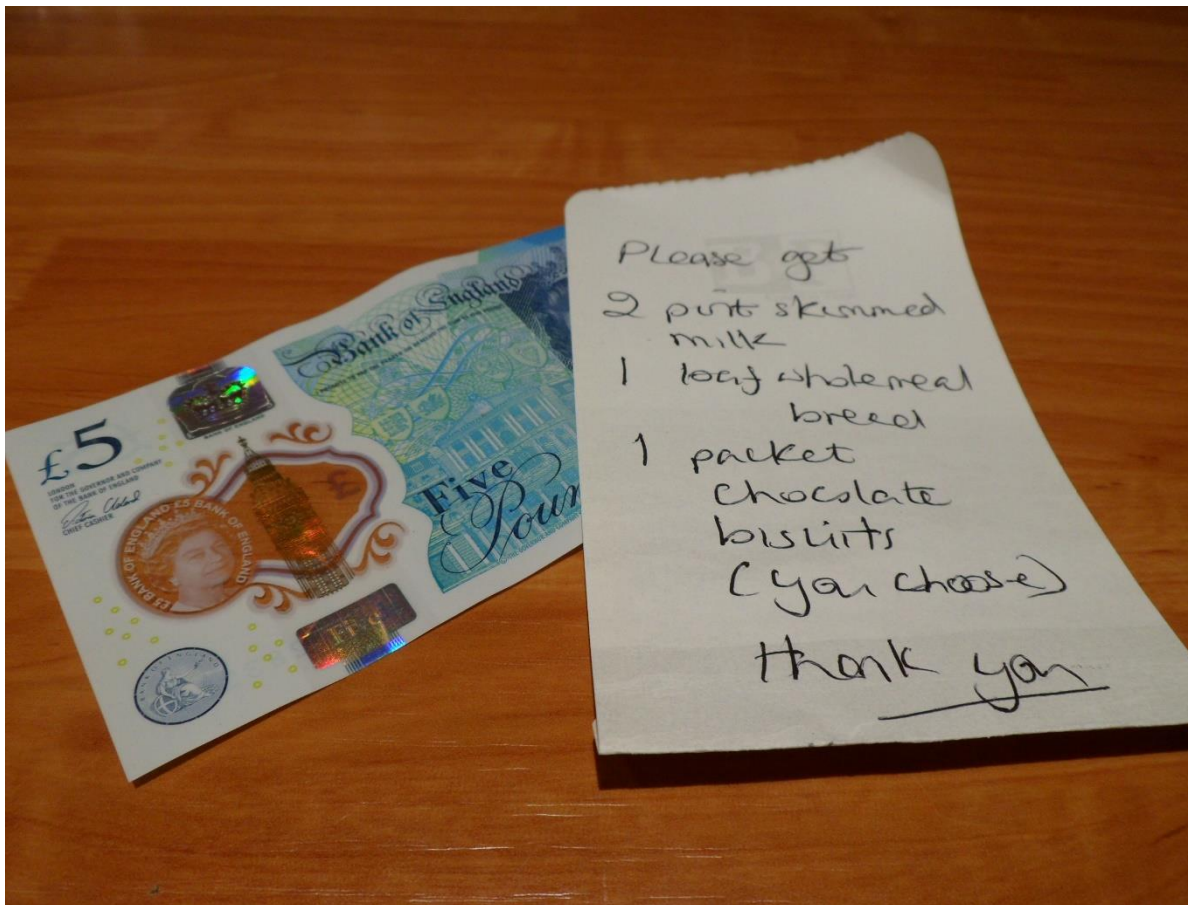 £5
LONDON
FOR THE GOVERNOR AND COMPANY
OF THE BANK OF ENGLAND
CHIEF CASHIER
BANK OF ENGLAND
£5 BANK OF ENGLAND £5 BANK OF ENGLAND
Bank of England
Five
Poun
BANK OF ENGLAND
Please get
2 pint skimmed
milk
1 loaf wholemeal
bread
1 packet
chocolate
biscuits
(you choose)
thank you